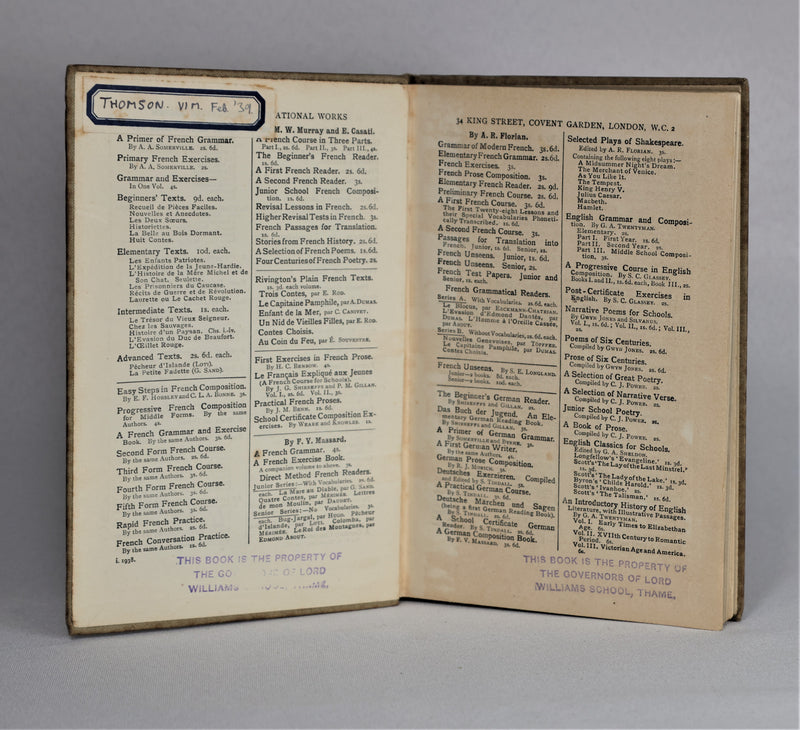 THOMSON. VIM. Feb. '39
ATIONAL WORKS
A Primer of French Grammar.
By A. A. SOMERVILLE. 2s. 6d.
Primary French Exercises.
By A. A. SOMERVILLE. 2s.
Grammar and Exercises—
In One Vol. 4s.
Beginners' Texts. 9d. each.
Recueil de Pièces Faciles.
Nouvelles et Anecdotes.
Les Deux Sœurs.
Historiettes.
La Belle au Bois Dormant.
Huit Contes.
Elementary Texts. 10d. each.
Les Enfants Patriotes.
L'Expédition de la Jeune-Hardie.
L'Histoire de la Mère Michel et de
Son Chat. Seulette.
Les Prisonniers du Caucase.
Récits de Guerre et de Révolution.
Laurette ou Le Cachet Rouge.
Intermediate Texts. 1s. each.
Le Trésor du Vieux Seigneur.
Chez les Sauvages.
Histoire d'un Paysan. Chs. i.-iv.
L'Evasion du Duc de Beaufort.
L'Œillet Rouge.
Advanced Texts. 2s. 6d. each.
Pêcheur d'Islande (LOTI).
La Petite Fadette (G. SAND).
Easy Steps in French Composition.
By E. F. HORSLEY and C. L. A. BONNE. 3s.
Progressive French Composition
for Middle Forms. By the same
Authors. 4s.
A French Grammar and Exercise
Book. By the same Authors. 3s. 6d.
Second Form French Course.
By the same Authors. 2s. 6d.
Third Form French Course.
By the same Authors. 3s. 6d.
Fourth Form French Course.
By the same Authors. 3s. 6d.
Fifth Form French Course.
By the same Authors. 3s. 6d.
Rapid French Practice.
By the same Authors. 2s. 6d.
French Conversation Practice.
By the same Authors. 1s. 6d.
i. 1938.
M. W. Murray and E. Casati.
A French Course in Three Parts.
Part I., 2s. 6d. Part II., 3s. Part III., 4s.
The Beginner's French Reader.
1s. 6d.
A First French Reader. 2s. 6d.
A Second French Reader. 3s.
Junior School French Composi-
tion. 1s. 6d.
Revisal Lessons in French. 2s. 6d.
Higher Revisal Tests in French. 3s.
French Passages for Translation.
1s. 6d.
Stories from French History. 2s. 6d.
A Selection of French Poems. 1s. 6d.
Four Centuries of French Poetry. 2s.
Rivington's Plain French Texts.
1s. 3d. each volume.
Trois Contes, par E. ROD.
Le Capitaine Pamphile, par A. DUMAS.
Enfant de la Mer, par C. CANIVET.
Un Nid de Vieilles Filles, par E. ROD.
Contes Choisis.
Au Coin du Feu, par É. SOUVESTRE.
First Exercises in French Prose.
By H. C. BENSON. 4s.
Le Français Expliqué aux Jeunes
(A French Course for Schools).
By J. G. SHIREFFS and P. M. GILLAN.
Vol. I., 2s. 6d. Vol. II., 3s.
Practical French Proses.
By J. M. BENN. 1s. 6d.
School Certificate Composition Ex-
ercises. By WEARE and KNOWLES. 1s.
By F. V. Massard.
A French Grammar. 4s.
A French Exercise Book.
A companion volume to above. 3s.
Direct Method French Readers.
Junior Series:—With Vocabularies. 1s. 6d.
each. La Mare au Diable, par G. SAND.
Quatre Contes, par MÉRIMÉE. Lettres
de mon Moulin, par DAUDET.
Senior Series:—No Vocabularies. 3s.
each. Bug-Jargal, par HUGO. Pêcheur
d'Islande, par LOTI. Colomba, par
MÉRIMÉE. Le Roi des Montagnes, par
EDMOND ABOUT.
THIS BOOK IS THE PROPERTY OF
THE GO OF LORD
WILLIAMS THAME.
34 KING STREET, COVENT GARDEN, LONDON, W.C. 2
By A. R. Florian.
Grammar of Modern French. 3s. 6d.
Elementary French Grammar. 2s. 6d.
French Exercises. 3s.
French Prose Composition. 3s.
Elementary French Reader. 2s. 9d.
Preliminary French Course. 2s. 6d.
A First French Course. 3s. 6d.
The First Twenty-eight Lessons and
their Special Vocabularies Phoneti-
cally Transcribed. 1s. 6d.
A Second French Course. 3s.
Passages for Translation into
French. Junior, 1s. 6d. Senior, 2s. 6d.
French Unseens. Junior, 1s. 6d.
French Unseens. Senior, 2s.
French Test Papers. Junior and
Senior, 1s. each.
French Grammatical Readers.
Series A. With Vocabularies. 2s. 6d. each.
Le Blocus, par ERCKMANN-CHATRIAN.
L'Evasion d'Edmond Dantès, par
DUMAS. L'Homme à l'Oreille Cassée,
par ABOUT.
Series B. Without Vocabularies, 2s. 6d. each.
Nouvelles Genevoises, par TÖPFFER.
Le Capitaine Pamphile, par DUMAS.
Contes Choisis.
French Unseens. By S. E. LONGLAND.
Junior—2 books. 8d. each.
Senior—2 books. 10d. each.
The Beginner's German Reader.
By SHIREFFS and GILLAN. 2s.
Das Buch der Jugend. An Ele-
mentary German Reading Book.
By SHIREFFS and GILLAN. 3s.
A Primer of German Grammar.
By SOMERVILLE and BYRNE. 3s.
A First German Writer.
By the same Authors. 4s.
German Prose Composition.
By R. J. MORICH. 5s.
Deutsches Exerzieren. Compiled
and Edited by S. TINDALL. 3s.
A Practical German Course.
By S. TINDALL. 3s. 6d.
Deutsche Märchen und Sagen
(being a first German Reading Book).
By S. TINDALL. 2s. 6d.
A School Certificate German
Reader. By S. TINDALL. 2s. 6d.
A German Composition Book.
By F. V. MASSARD. 3s. 6d.
Selected Plays of Shakespeare.
Edited by A. R. FLORIAN. 3s.
Containing the following eight plays:—
A Midsummer Night's Dream.
The Merchant of Venice.
As You Like It.
The Tempest.
King Henry V.
Julius Caesar.
Macbeth.
Hamlet.
English Grammar and Composi-
tion. By G. A. TWENTYMAN.
Elementary. 2s.
Part I. First Year. 1s. 6d.
Part II. Second Year. 3s.
Part III. Middle School Composi-
tion. 3s.
A Progressive Course in English
Composition. By S. C. GLASSEY.
Books I. and II., 1s. 6d. each, Book III., 2s.
Post-Certificate Exercises in
English. By S. C. GLASSEY. 2s.
Narrative Poems for Schools.
By GWYN JONES and SOLWANDS.
Vol. I., 1s. 6d.; Vol. II., 1s. 6d.; Vol. III.,
2s.
Poems of Six Centuries.
Compiled by GWYN JONES. 2s. 6d.
Prose of Six Centuries.
Compiled by GWYN JONES. 2s. 6d.
A Selection of Great Poetry.
Compiled by C. J. POWER. 2s.
A Selection of Narrative Verse.
Compiled by C. J. POWER. 2s.
Junior School Poetry.
Compiled by C. J. POWER. 2s.
A Book of Prose.
Compiled by C. J. POWER. 2s.
English Classics for Schools.
Edited by G. A. SHELDON.
Longfellow's 'Evangeline.' 1s. 3d.
Scott's 'The Lay of the Last Minstrel.'
1s. 3d.
Scott's 'The Lady of the Lake.' 1s. 3d.
Byron's 'Childe Harold.' 1s. 3d.
Scott's 'Ivanhoe.' 2s.
Scott's 'The Talisman.' 1s. 6d.
An Introductory History of English
Literature, with Illustrative Passages.
By G. A. TWENTYMAN.
Vol. I. Early Times to Elizabethan
Age. 6s.
Vol. II. XVIIth Century to Romantic
Period. 6s.
Vol. III. Victorian Age and America.
6s.
THIS BOOK IS THE PROPERTY OF
THE GOVERNORS OF LORD
WILLIAMS SCHOOL, THAME.